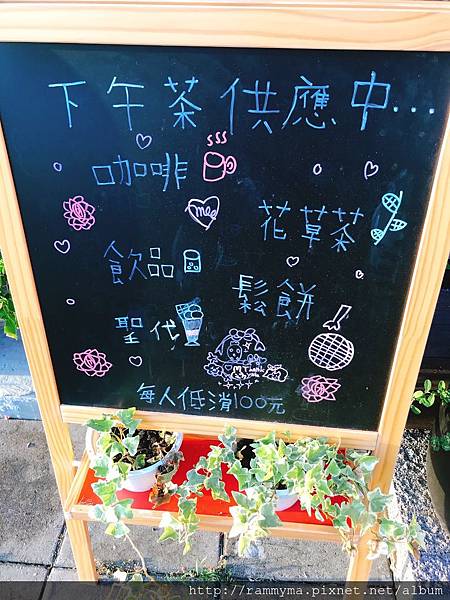 下午茶供應中...
咖啡
me
花草茶
飲品
鬆餅
聖代
每人低消100元
http://rammyma.pixnet.net/album